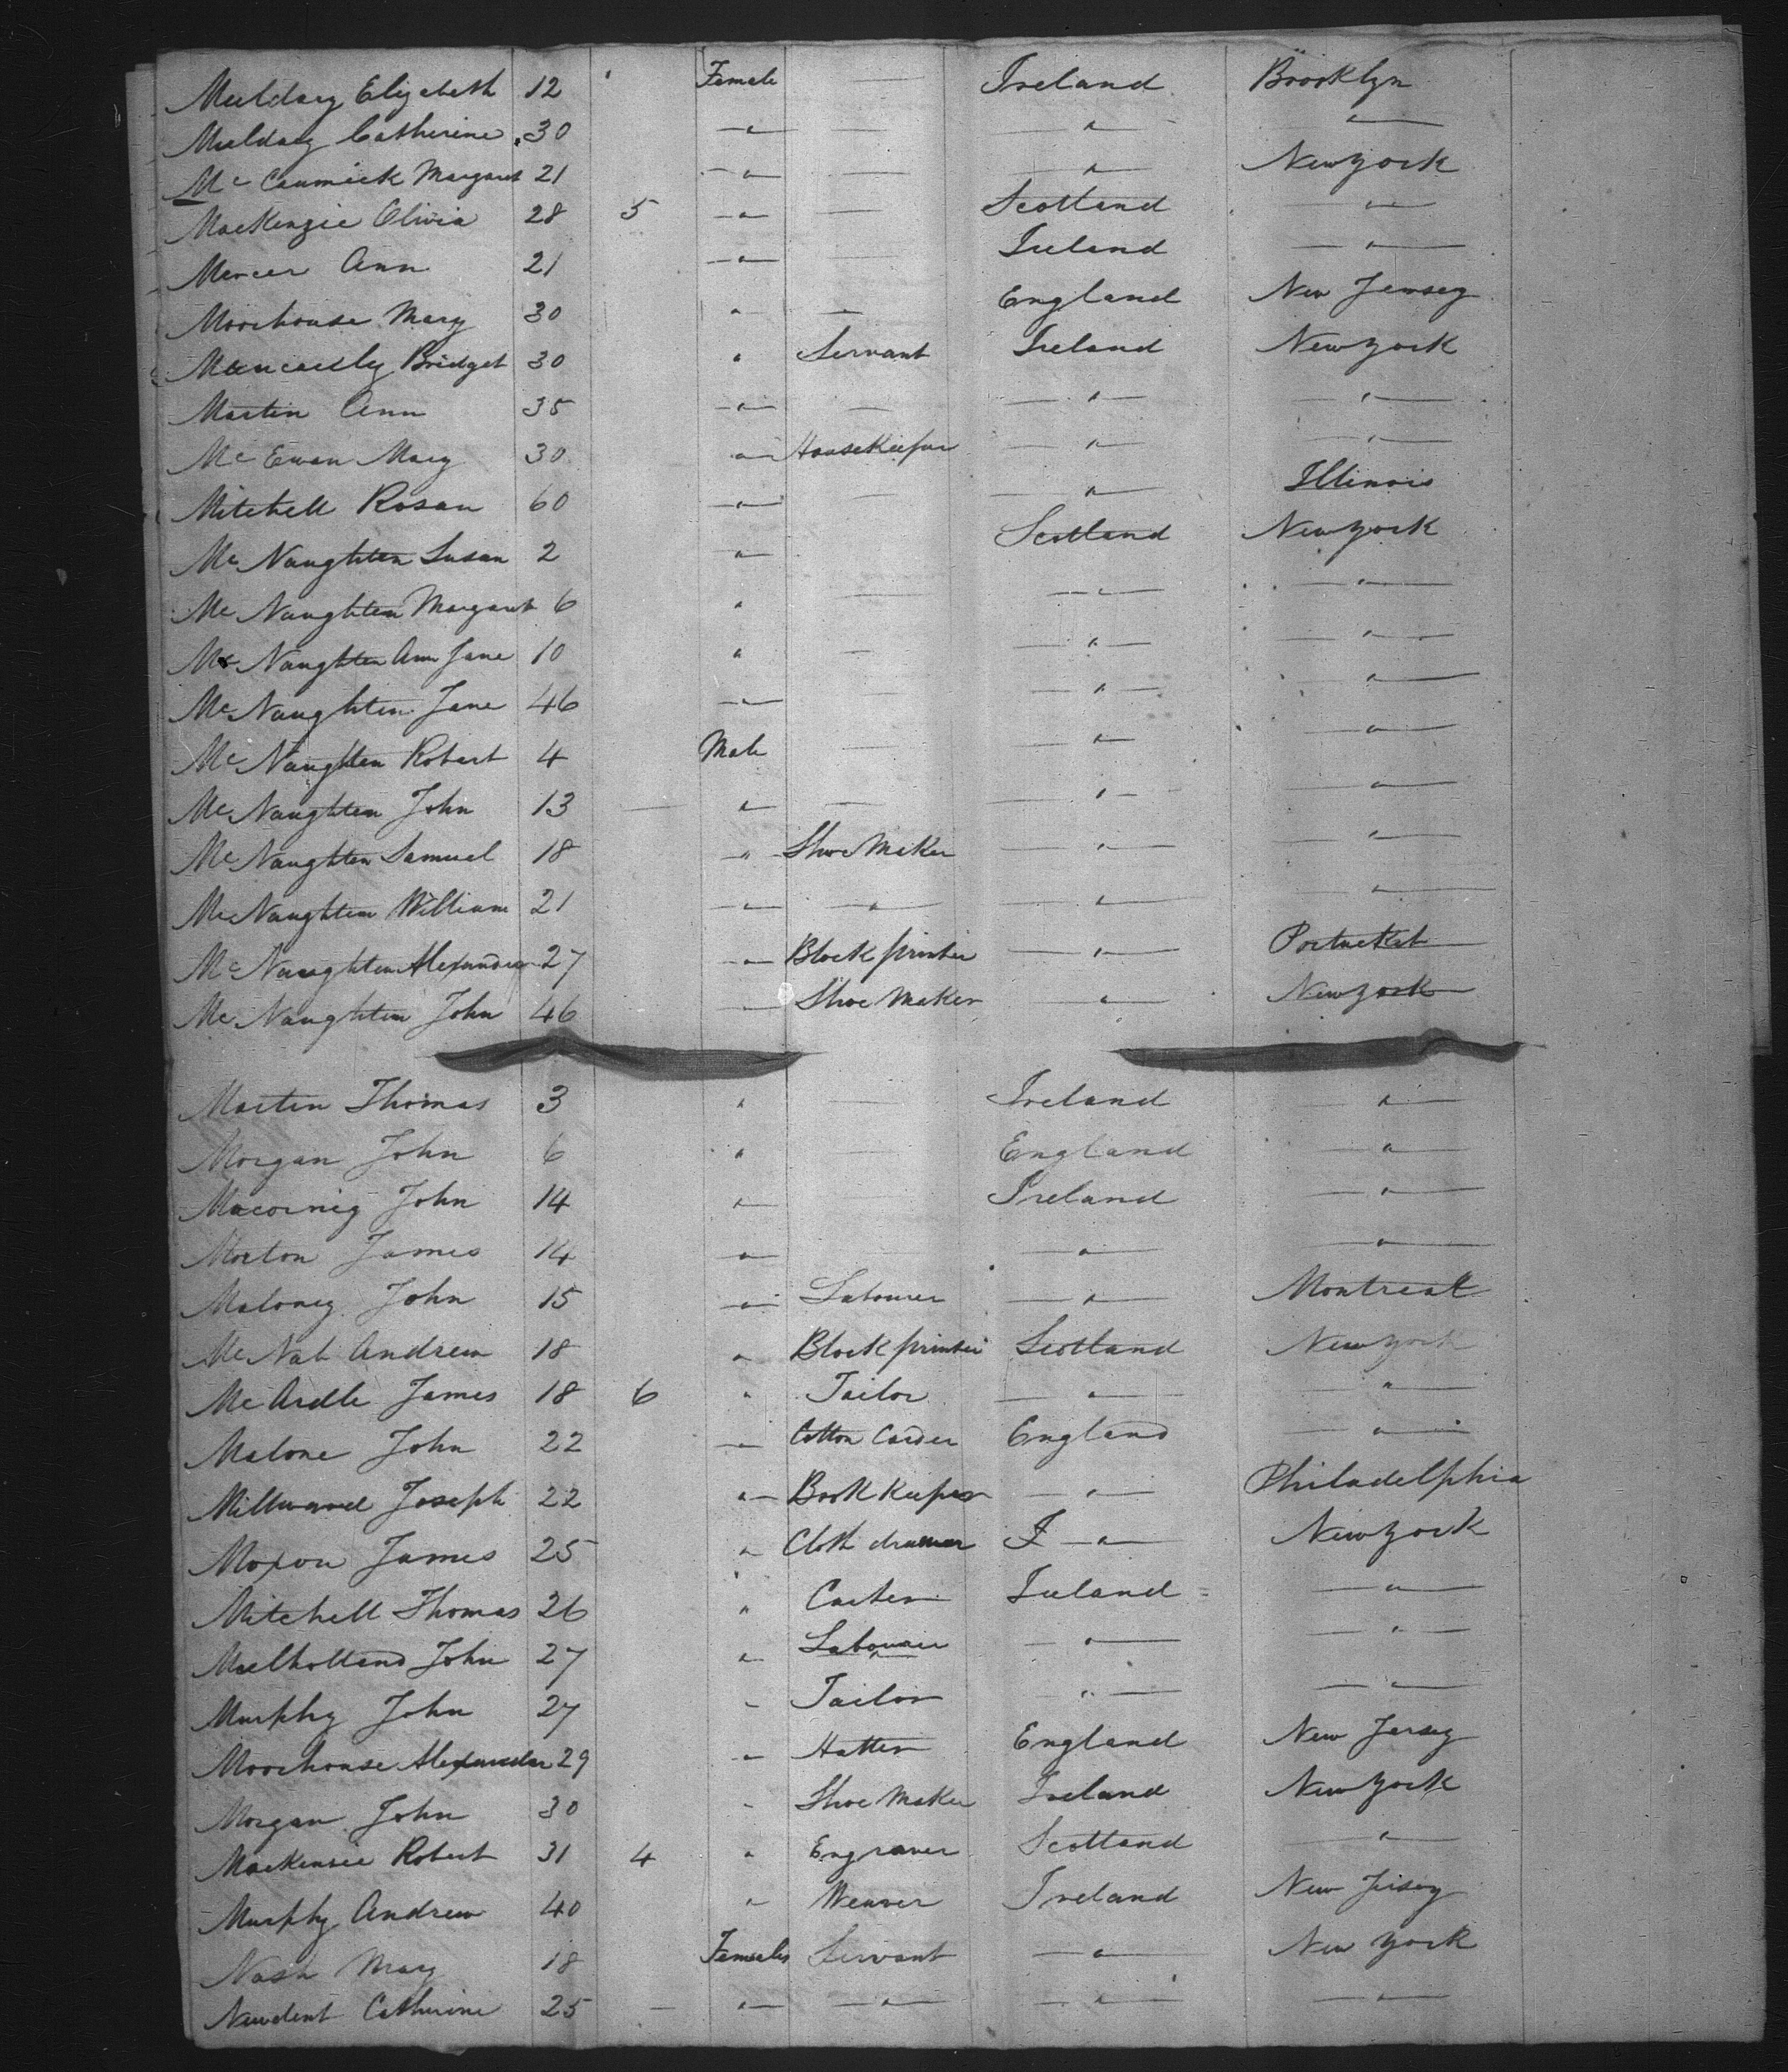 Muldary Elizabeth 12 Female — Ireland Brooklyn
Muldary Catherine 30 —"— — —"— —"—
Mc Cammick Margaret 21 —"— — —"— New York
MacKenzie Olivia 28 5 —"— — Scotland —"—
Mercer Ann 21 —"— — Ireland —"—
Moorhouse Mary 30 " — England New Jersey
Bridget 30 " Servant Ireland New York
Martin Ann 35 —"— — —"— —"—
Mc Ewan Mary 30 —"— HouseKeeper —"— —"—
Mitchell Rosan 60 —"— — —"— Illinois
Mc Naughten Susan 2 " Scotland New York
Mc Naughten Margaret 6 " — —"— —"—
Mc Naughten Ann Jane 10 " — —"— —"—
Mc Naughten Jane 46 —"— — —"— —"—
Mc Naughten Robert 4 Male — —"— —"—
Mc Naughten John 13 — " — —"— —"—
Mc Naughten Samuel 18 " Shoe Maker —"— —"—
Mc Naughten William 21 —"— —"— —"— —"—
Mc Naughten Alexander 27 —"— Block printer —"— Portucket
Mc Naughten John 46 — Shoe Maker —"— New York
Martin Thomas 3 " — Ireland —"—
Morgan John 6 " — England —"—
Macornig John 14 " Ireland —"—
Morton James 14 " —"— —"—
Maloney John 15 —"— Labourer —"— Montreal
Mc Nab Andrew 18 " Block printer Scotland New York
Mc Ardle James 18 6 " Tailor —"— "
Malone John 22 —"— Cotton Carder England —"—
Millward Joseph 22 " Book Keeper —"— Philadelphia
Moxon James 25 " Cloth I —"— New York
Mitchell Thomas 26 " Carter Ireland —"—
Mulholland John 27 " Labourer —"— —"—
Murphy John 27 " Tailor —"— —"—
Moorhouse Alexander 29 " Hatter England New Jersey
Morgan John 30 " Shoe Maker Ireland New York
MacKensie Robert 31 4 " Engraver Scotland —"—
Murphy Andrew 40 " Weaver Ireland New Jersey
Nash Mary 18 Females Servant —"— New York
Newdent Catherine 25 — —"— —"— —"— —"—